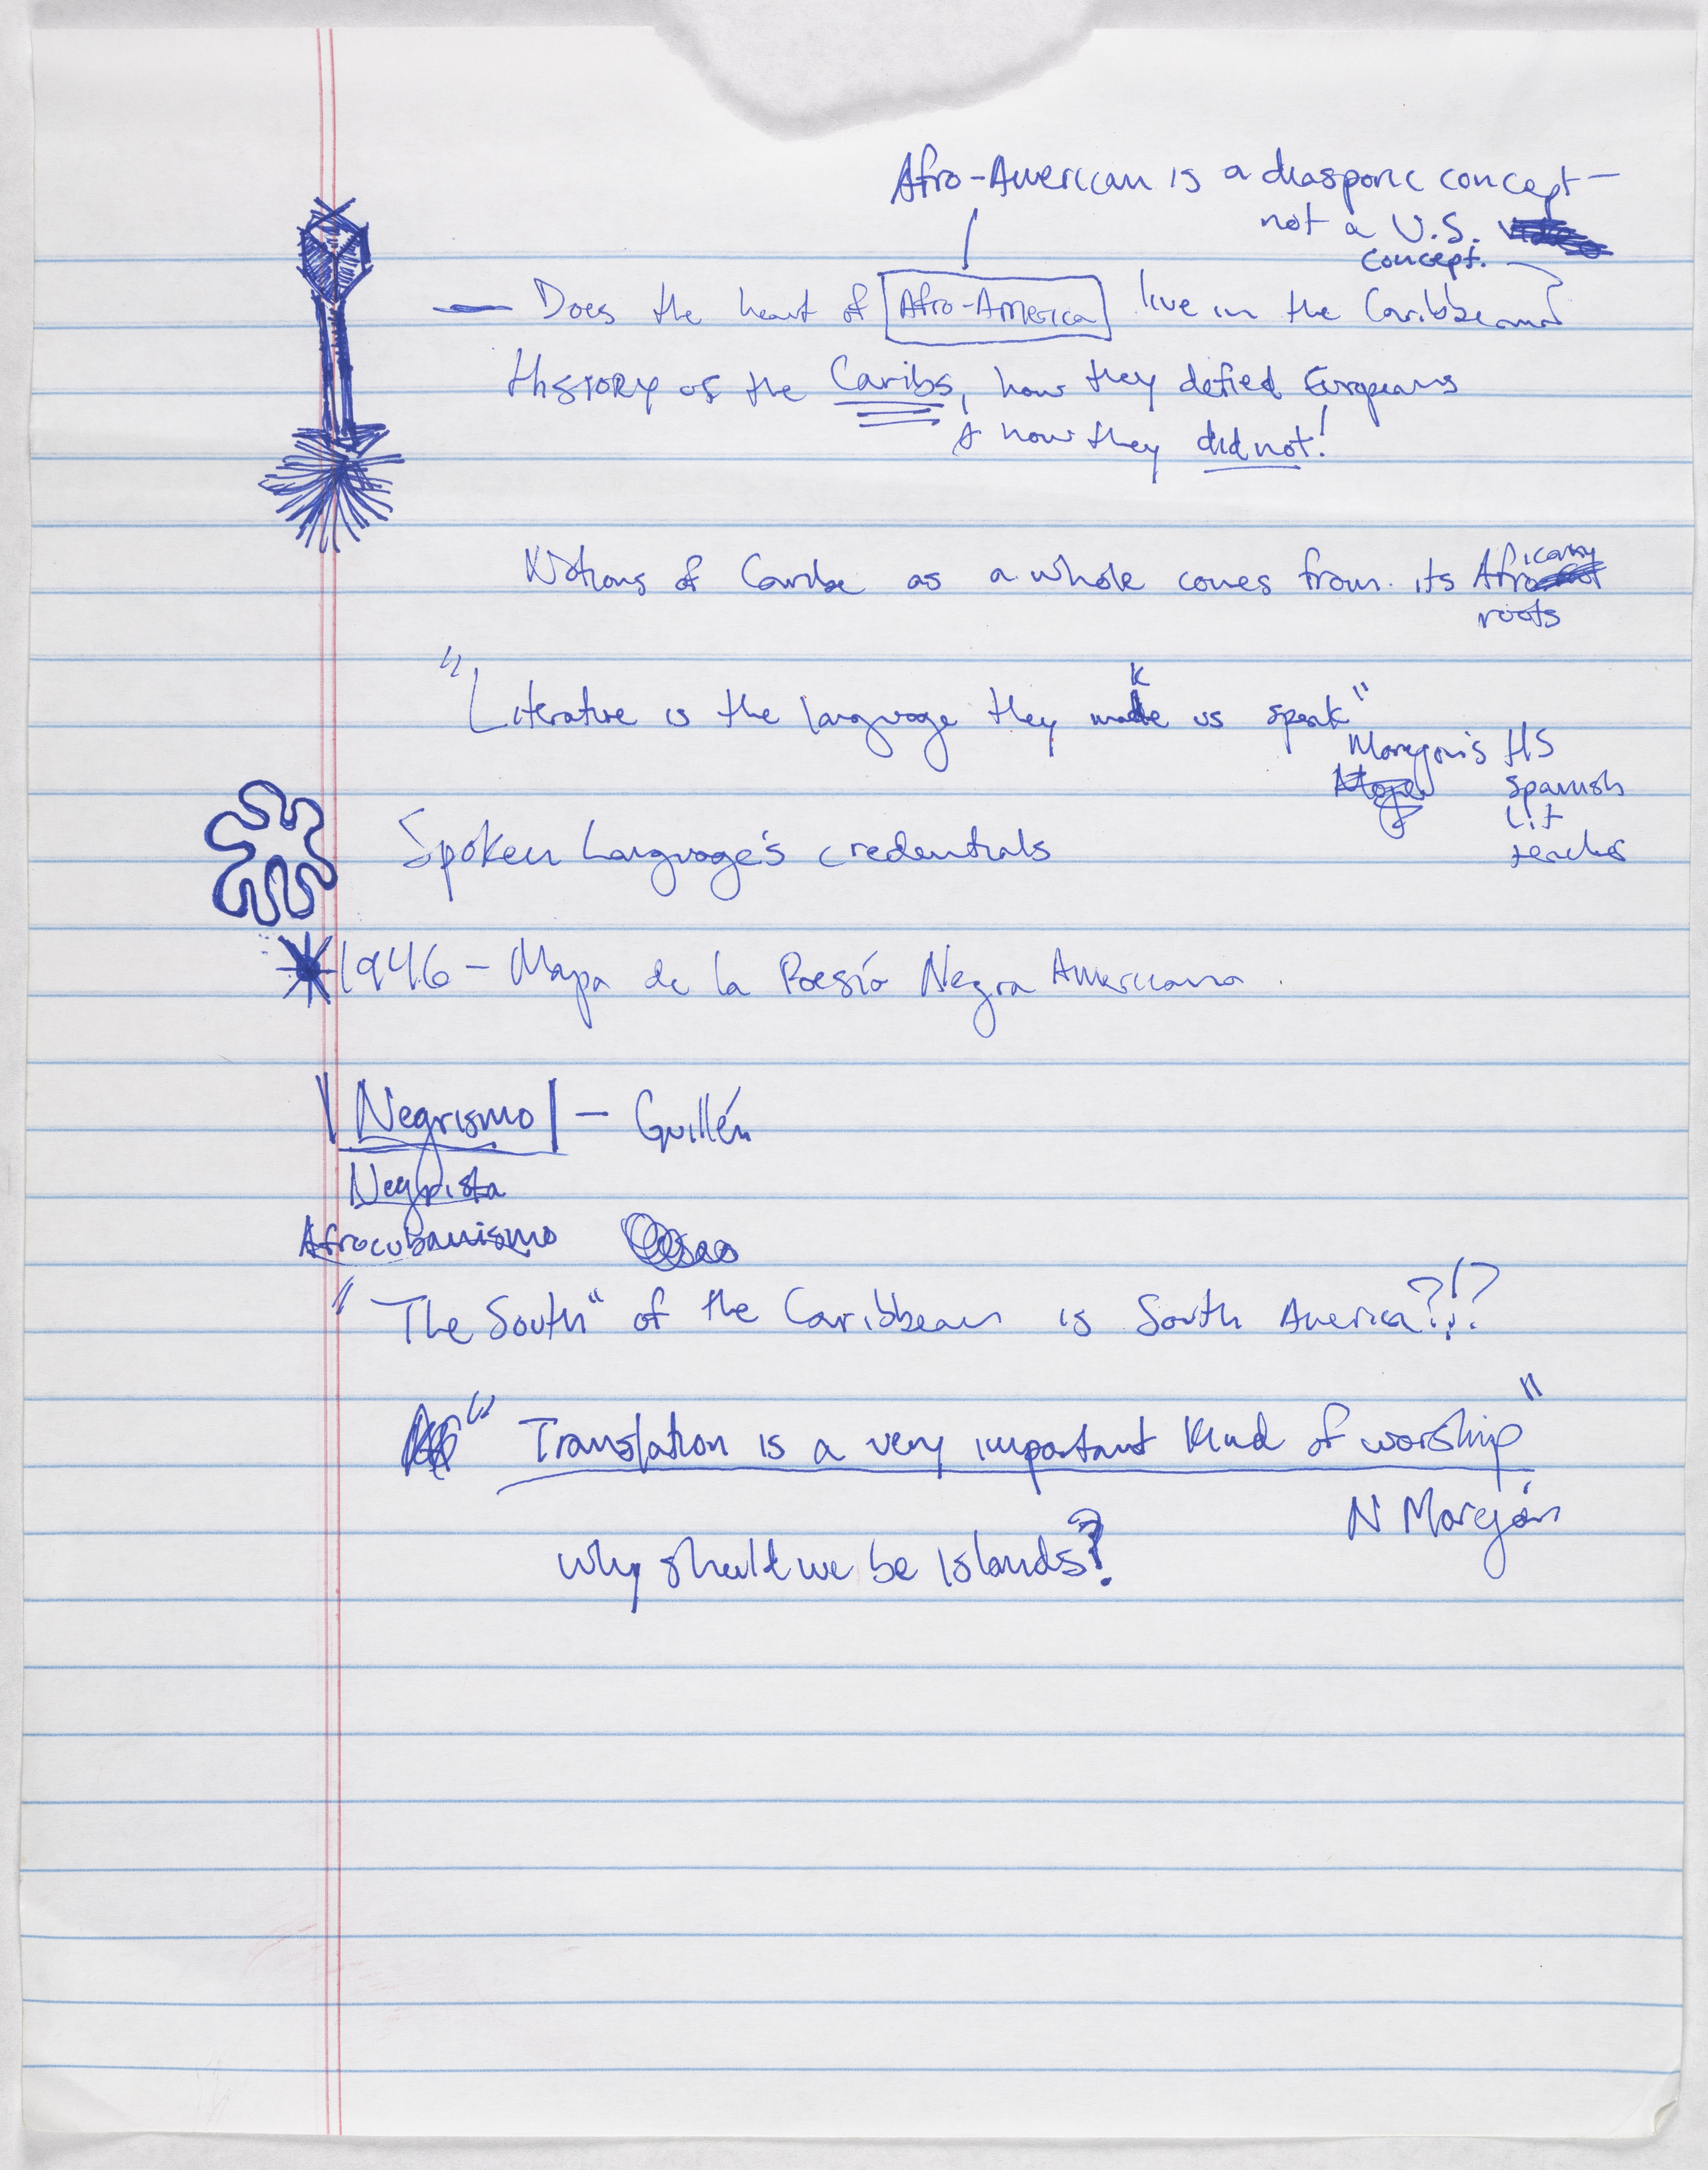 Afro-American is a diasporic concept –
not a U.S.
concept.
— Does the heart of Afro-America live in the Caribbean
History of the Caribs, how they defied Europeans
& how they did not!
Notions of Caribe as a whole comes from its African
roots
"Literature is the language they make us speak"
Morejon's HS
Spanish
Lit
teacher
Spoken Language's credentials
1946 – Mapa de la Poesía Negra Americana.
Negrismo – Guillén
Negrista
Afrocubanismo
"The South" of the Caribbean is South America?!?
"Translation is a very important kind of worship"
N Morejón
Why should we be islands?